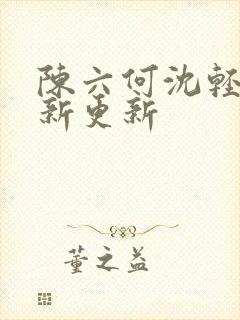 陳六何沈輕
新更新
董之益